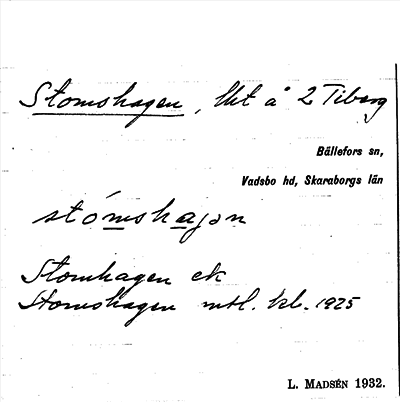 Stomshagen, lht å 2 Tiberg
Bällefors sn,
Vadsbo hd, Skaraborgs län
stómshagən
Stomhagen ek
Stomshagen mtl. kl. 1925
L. MADSÉN 1932.